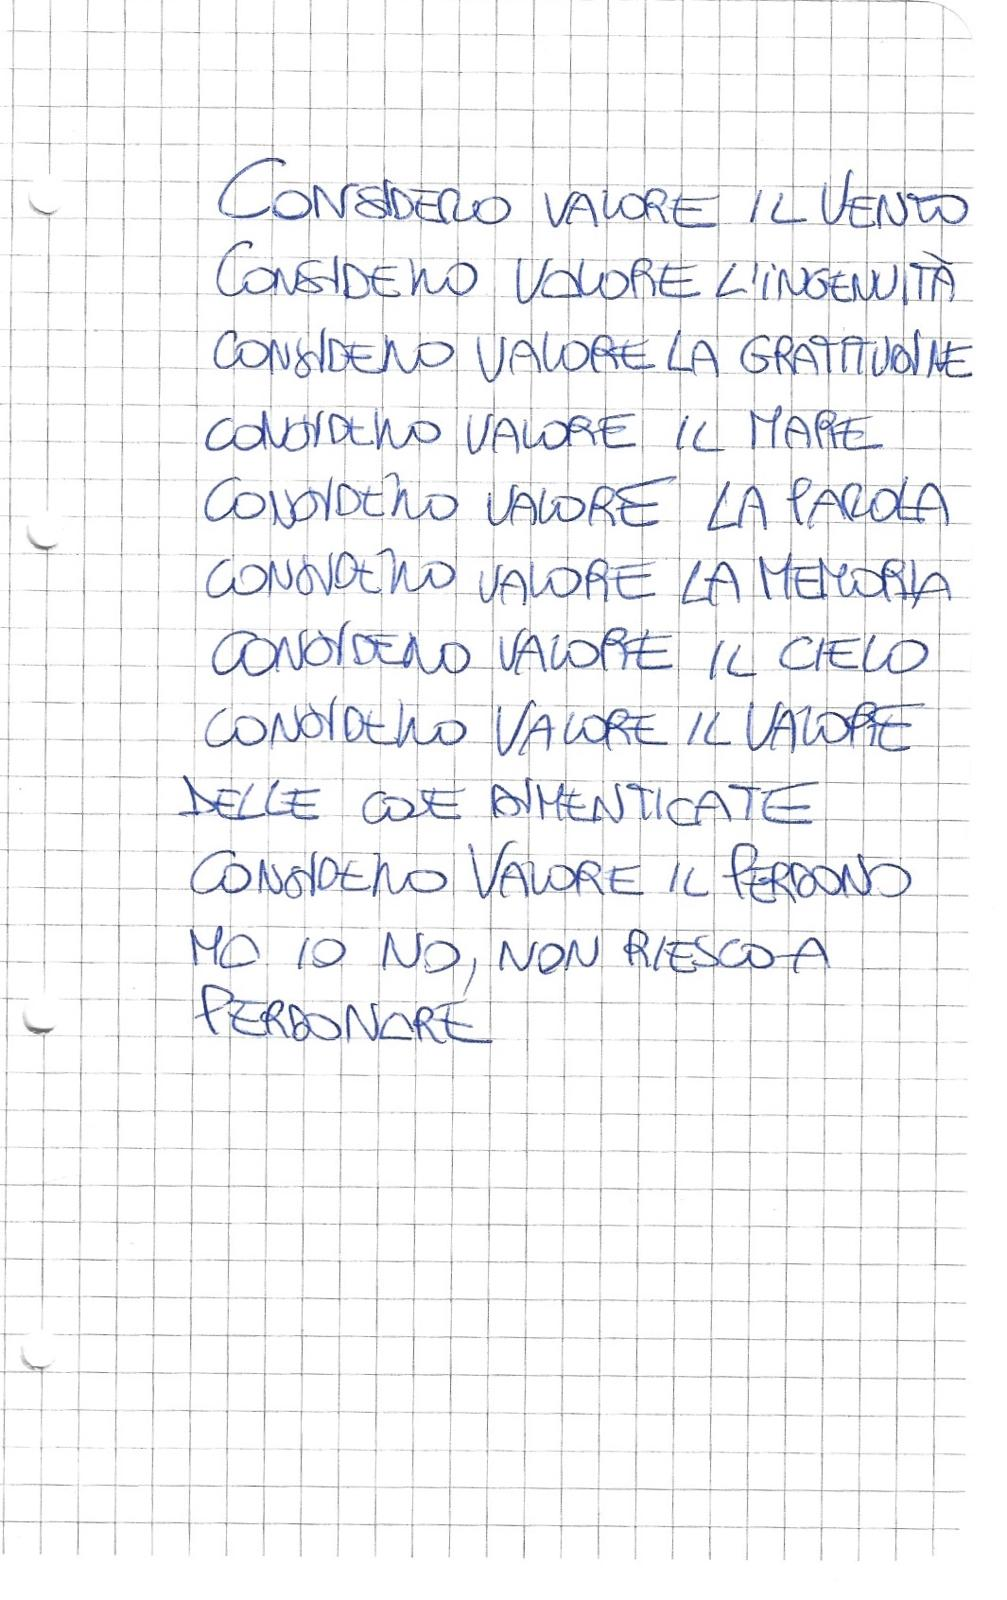 CONSIDERO VALORE IL VENTO
CONSIDERO VALORE L'INGENUITÀ
CONSIDERO VALORE LA GRATTITUDINE
CONSIDERO VALORE IL MARE
CONSIDERO VALORE LA PAROLA
CONSIDERO VALORE LA MEMORIA
CONSIDERO VALORE IL CIELO
CONSIDERO VALORE IL VALORE
DELLE COSE DIMENTICATE
CONSIDERO VALORE IL PERDONO
MA IO NO, NON RIESCO A
PERDONARE